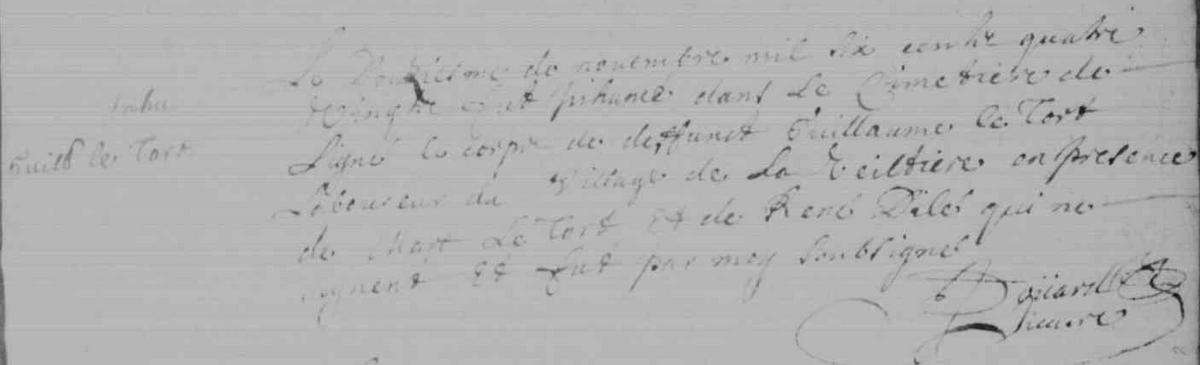 Le Douziesme de novembre mil six cents quatre
vingts fut inhumé dans Le Cimetiere de
Ligné le corps de deffunct Guillaume le Tort
Laboureur du Village de La en presence
de Le Tort Et de René qui ne
signent Et fut par moy soubsigné
inhu
Guill le Tort
vicaire